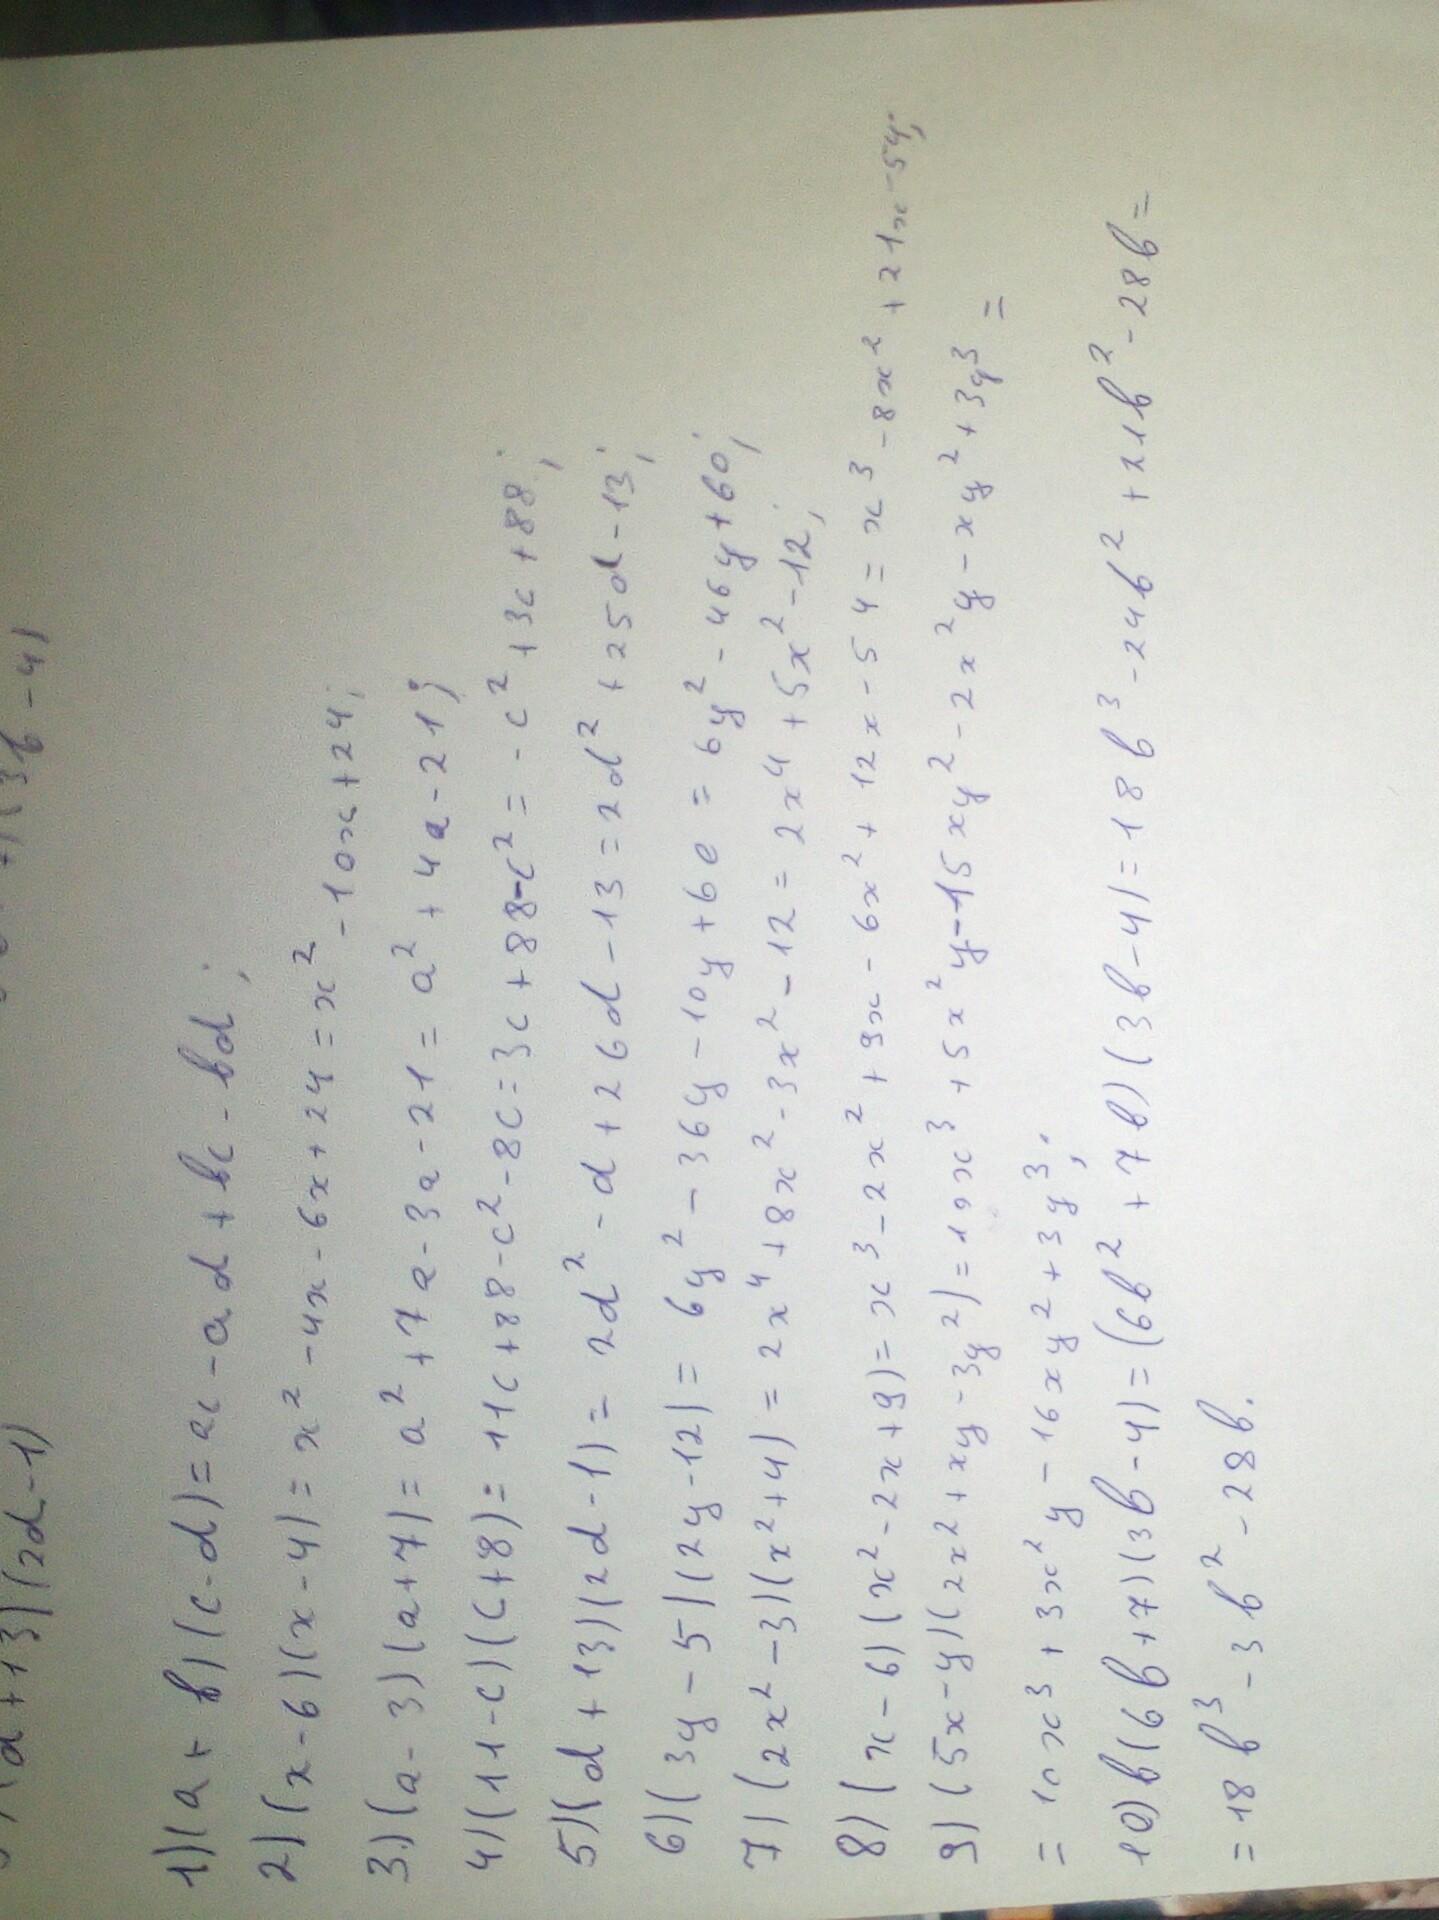 (2d-1)
(3b-4)
1)(a+b)(c-d)=ac-ad+bc-bd;
2)(x-6)(x-4)=x²-4x-6x+24=x²-10x+24;
3)(a-3)(a+7)=a²+7a-3a-21=a²+4a-21;
4)(11-c)(c+8)=11c+88-c²-8c=3c+88-c²=-c²+3c+88;
5)(d+13)(2d-1)=2d²-d+26d-13=2d²+25d-13;
6)(3y-5)(2y-12)=6y²-36y-10y+60=6y²-46y+60;
7)(2x²-3)(x²+4)=2x⁴+8x²-3x²-12=2x⁴+5x²-12;
8)(x-6)(x²-2x+9)=x³-2x²+9x-6x²+12x-54=x³-8x²+21x-54;
9)(5x-y)(2x²+xy-3y²)=10x³+5x²y-15xy²-2x²y-xy²+3y³=
=10x³+3x²y-16xy²+3y³;
10)b(6b+7)(3b-4)=(6b²+7b)(3b-4)=18b³-24b²+21b²-28b=
=18b³-3b²-28b.